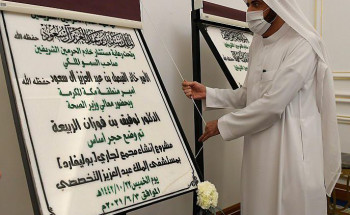 تحت رعاية مستشار خادم الحرمين الشريفين
صاحب السمو الملكي
الأمير خالد الفيصل بن عبد العزيز آل سعود حفظه الله
أمير منطقة مكة المكرمة
وبحضور معالي وزير الصحة
الدكتور توفيق بن فوزان الربيعة
تم وضع حجر أساس
مشروع إنشاء مجمع تجاري (بوليفارد)
بمستشفى الملك عبدالعزيز التخصصي
يوم الخميس ١٤٤٢/١٠/٢٢هـ
الموافق ٢٠٢١/٦/٣م